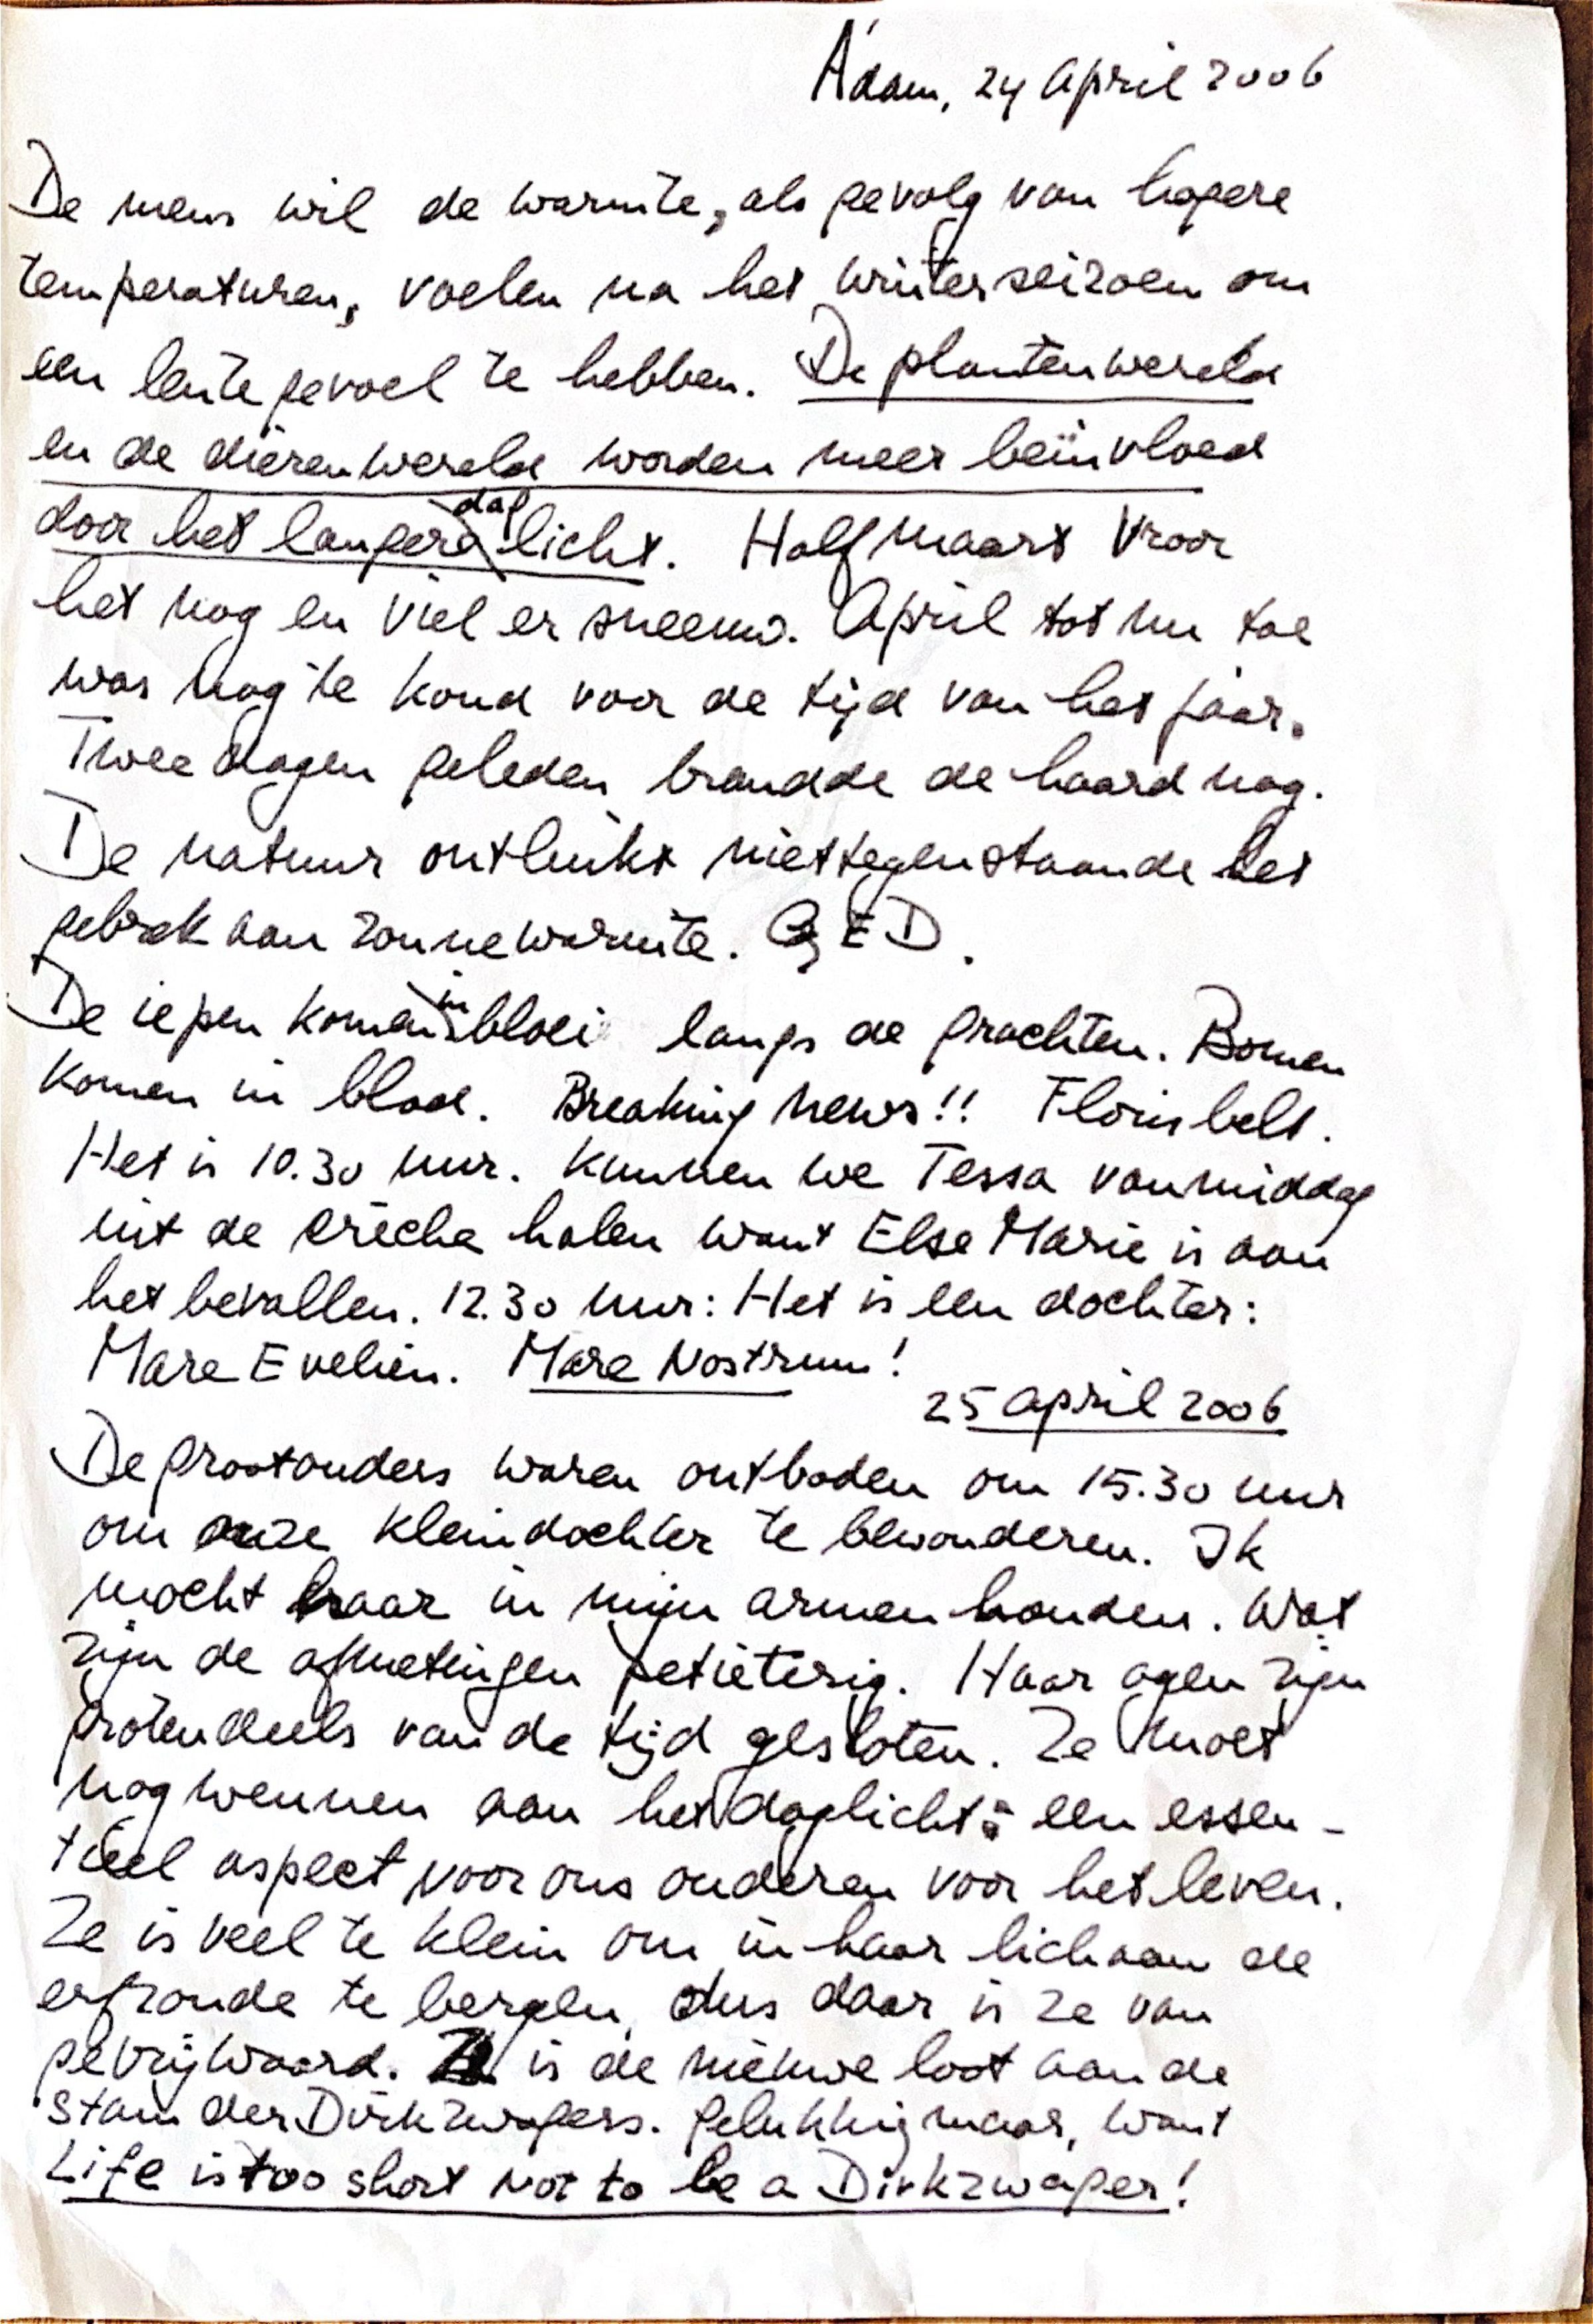 A'dam, 24 April 2006
De mens wil de warmte, als gevolg van hogere
temperaturen, voelen na het winterseizoen om
een lente gevoel te hebben. De plantenwereld
en de dierenwereld worden meer beïnvloed
door het langere daglicht. Half maart vroor
het nog en viel er sneeuw. April tot nu toe
was nog te koud voor de tijd van het jaar.
Twee dagen geleden brandde de haard nog.
De natuur ontluikt niettegenstaande het
gebrek aan zonnewarmte. QED.
De iepen komen in bloei langs de grachten. Bomen
komen in blad. Breaking news!! Floris belt.
Het is 10.30 uur. Kunnen we Tessa vanmiddag
uit de crèche halen want Else Marie is aan
het bevallen. 12.30 uur: Het is een dochter:
Mare Evelien. Mare Nostrum!
25 april 2006
De grootouders waren ontboden om 15.30 uur
om onze kleindochter te bewonderen. Ik
mocht haar in mijn armen houden. Wat
zijn de afmetingen petieterig. Haar ogen zijn
grotendeels van de tijd gesloten. Ze moet
nog wennen aan het daglicht: een essen-
tieel aspect voor ons ouderen voor het leven.
Ze is veel te klein om in haar lichaam de
erfzonde te bergen, dus daar is ze van
gevrijwaard. Ze is de nieuwe loot aan de
stam der Dirkzwagers. Gelukkig maar, want
Life is too short not to be a Dirkzwager!